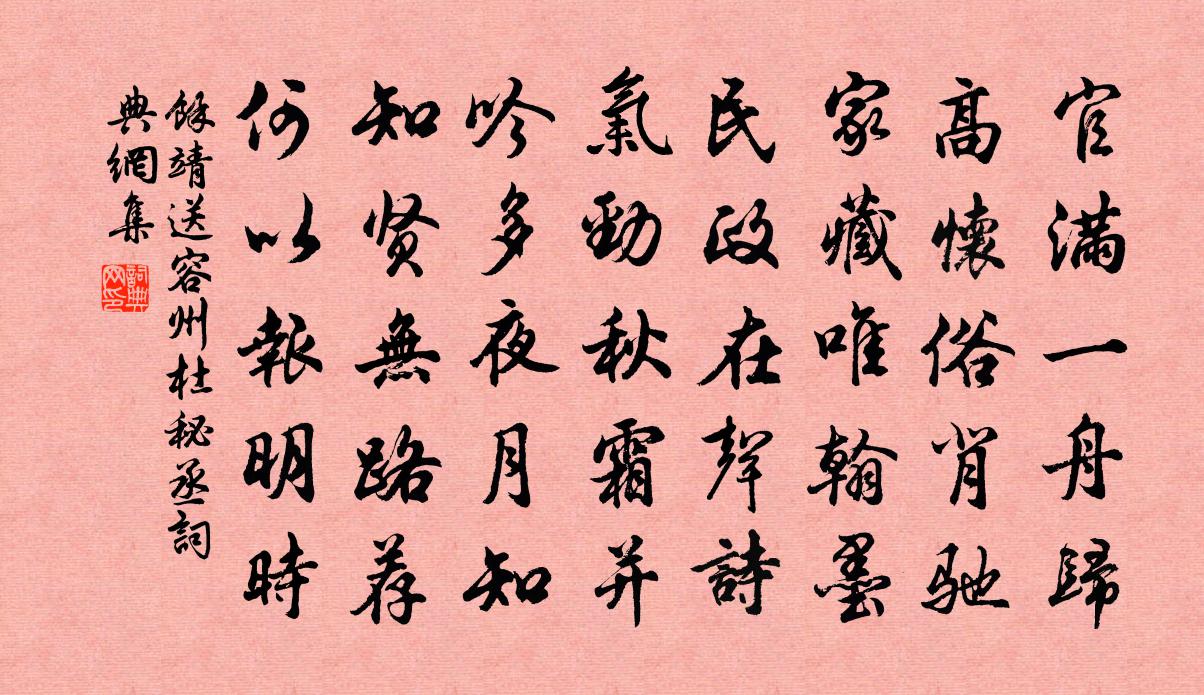 官滿一舟歸
高懷俗肖馳
家藏唯翰墨
民政在聲詩
氣勁秋霜并
吟多夜月知
知贤無路荐
何以報明時
餘靖送容州杜秘丞詞
典網集
詞典
网印